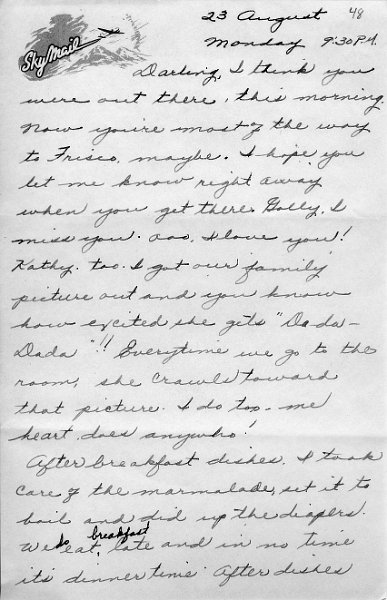 23 August 48
Sky Mail
Monday 9:30 P.M.
Darling, I think you
were out there, this morning.
Now you're most of the way
to Frisco, maybe. I hope you
let me know right away
when you get there. Golly, I
miss you. ooo. I love you!
Kathy. too. I got our family
picture out and you know
how excited she gets "Da-da-
Dada"!! Everytime we go to the
room, she crawls toward
that picture. I do too - me
heart does anywho!
After breakfast dishes. I took
care of the marmalade, set it to
boil and did up the diapers.
We do eat breakfast late and in no time
it's dinner time. After dishes